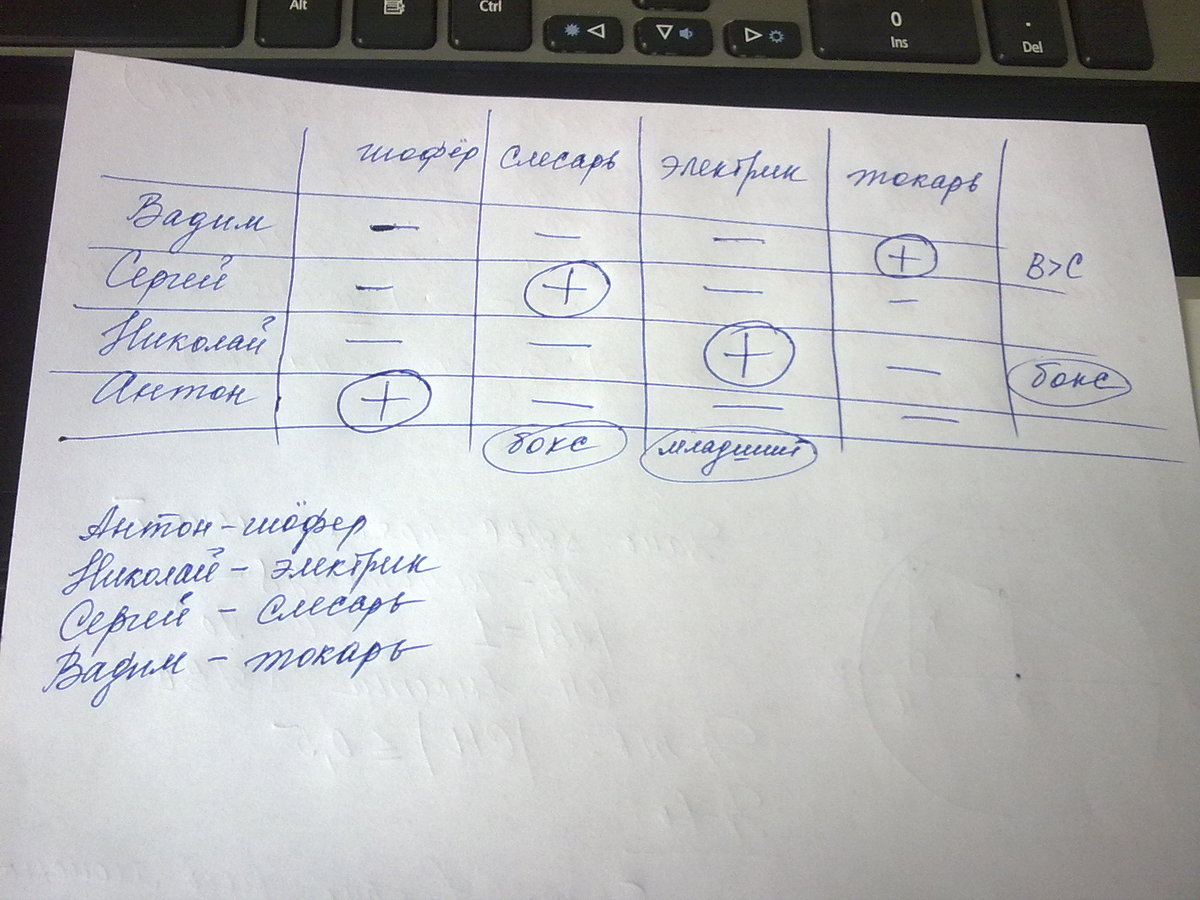 Alt
Ctrl
0
Ins
.
Del
шофёр слесарь электрик токарь
Вадим — — — +
Сергей — + — — В>С
Николай — — + — бокс
Антон + — — —
бокс младший
Антон - шофер
Николай - электрик
Сергей - слесарь
Вадим - токарь